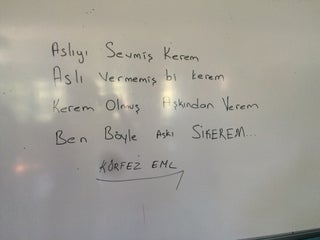 Aslıyı Sevmiş Kerem
Aslı vermemiş bi kerem
Kerem Olmuş Aşkından Verem
Ben Böyle Aşkı SİKEREM...
KÖRFEZ EML